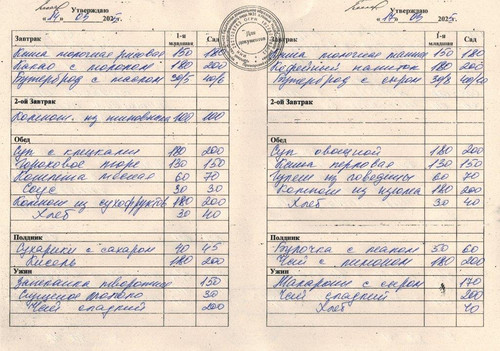 Утверждаю
«14» 05 2025г.
Завтрак 1-я младшая Сад
Каша молочная рисовая 150 180
Какао с молоком 180 200
Бутерброд с маслом 30/5 40/10
2-ой Завтрак
Компот из 100 100
Обед
Суп с клецками 180 200
Гороховое пюре 130 150
Котлета мясная 60 70
Соус 30 30
Компот из сухофруктов 180 200
Хлеб 30 40
Полдник
Сухарики с сахаром 40 45
Кисель 180 200
Ужин
Запеканка творожная 150
Сгущеное молоко 30
Чай сладкий 200
Для документов
Утверждаю
«14» 05 2025г.
Завтрак 1-я младшая Сад
Каша молочная манная 150 180
Кофейный напиток 180 200
Бутерброд с сыром
2-ой Завтрак
Обед
Суп овощной 180 200
Каша перловая 130 150
Гуляш из говядины 60 70
Компот из изюма 180 200
Хлеб 30 40
Полдник
Булочка с маком 50 60
Чай с лимоном 180 200
Ужин
Макароны с сыром 170
Чай сладкий 200
Хлеб 40